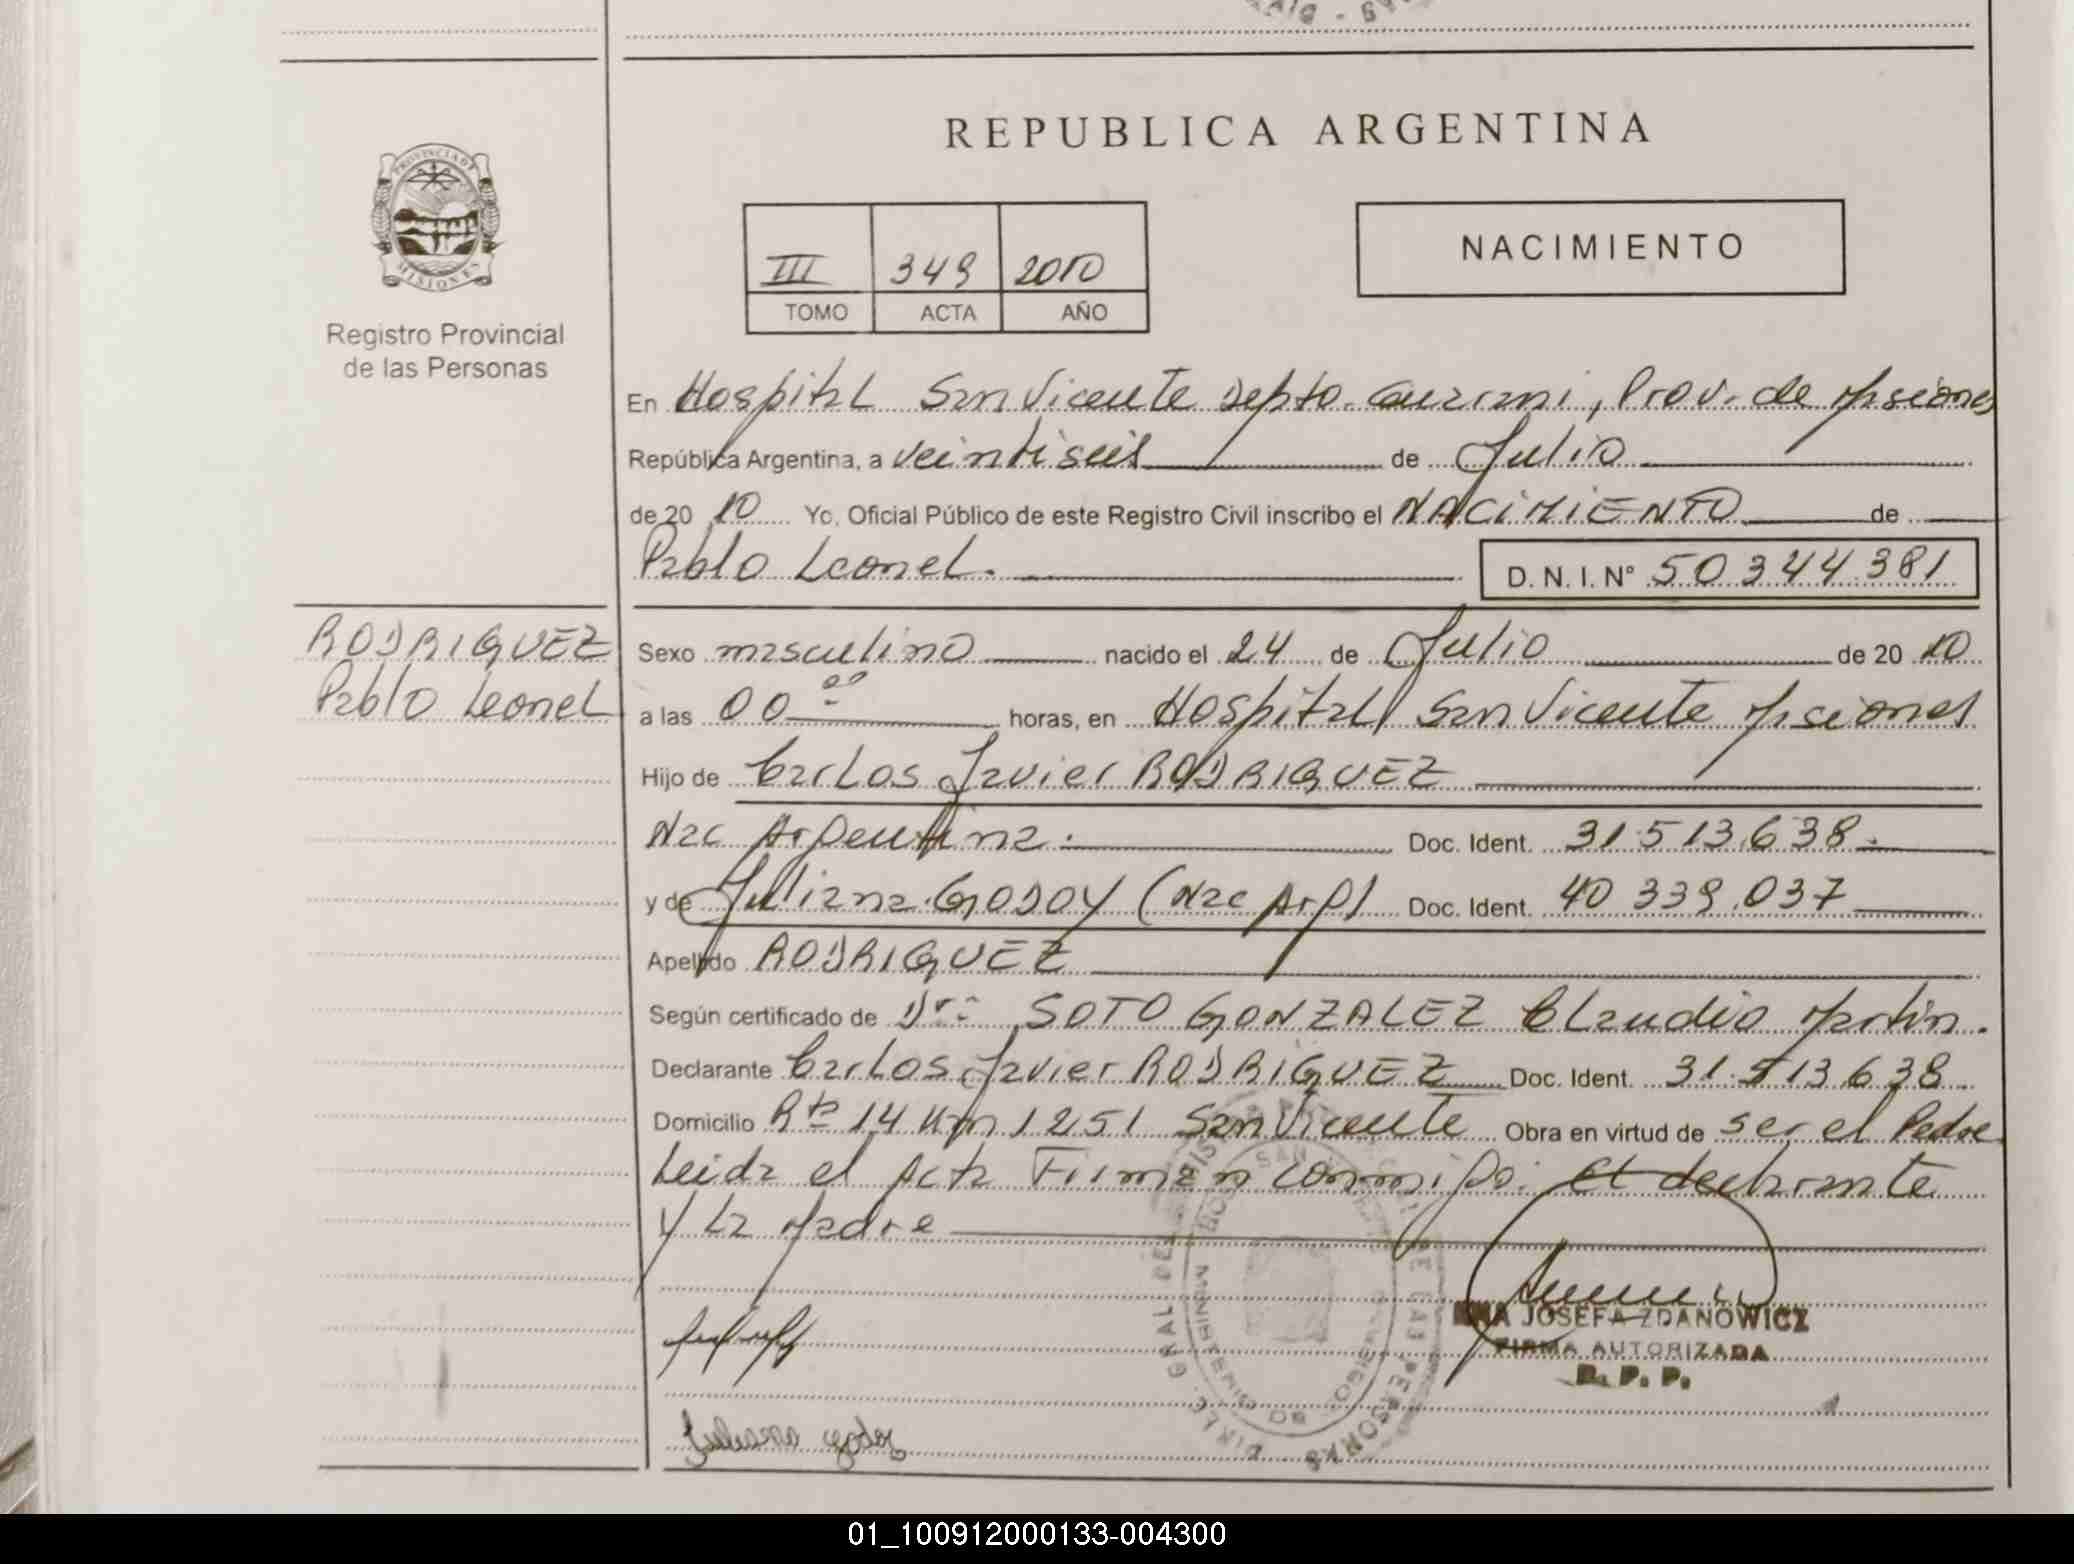 REPUBLICA ARGENTINA
PROVINCIA DE
MISIONES
Registro Provincial
de las Personas
III 349 2010
TOMO ACTA AÑO
NACIMIENTO
En Hospital San Vicente Depto. Guarani, Prov. de Misiones
República Argentina, a veintiseis de Julio
de 20 10 Yo, Oficial Público de este Registro Civil inscribo el NACIMIENTO de
Pablo Leonel. D. N. I. Nº 50344381
RODRIGUEZ
Pablo Leonel
Sexo masculino nacido el 24 de Julio de 20 10
a las 00 00 horas, en Hospital San Vicente Misiones
Hijo de Carlos Javier RODRIGUEZ
Nac Argentina. Doc. Ident. 31.513.638.
y de Juliana GODOY (Nac Arg) Doc. Ident. 40 339.037
Apellido RODRIGUEZ
Según certificado de SOTO GONZALEZ Claudio Martin.
Declarante Carlos Javier RODRIGUEZ Doc. Ident. 31.513.638
Domicilio Rta 14 Km 1251 San Vicente Obra en virtud de ser el Padre
Leida el Acta Firman conmigo: el declarante
y La Madre
JOSEFA ZDANOWICZ
FIRMA AUTORIZADA
R. P. P.
Juliana godoy
01_100912000133-004300